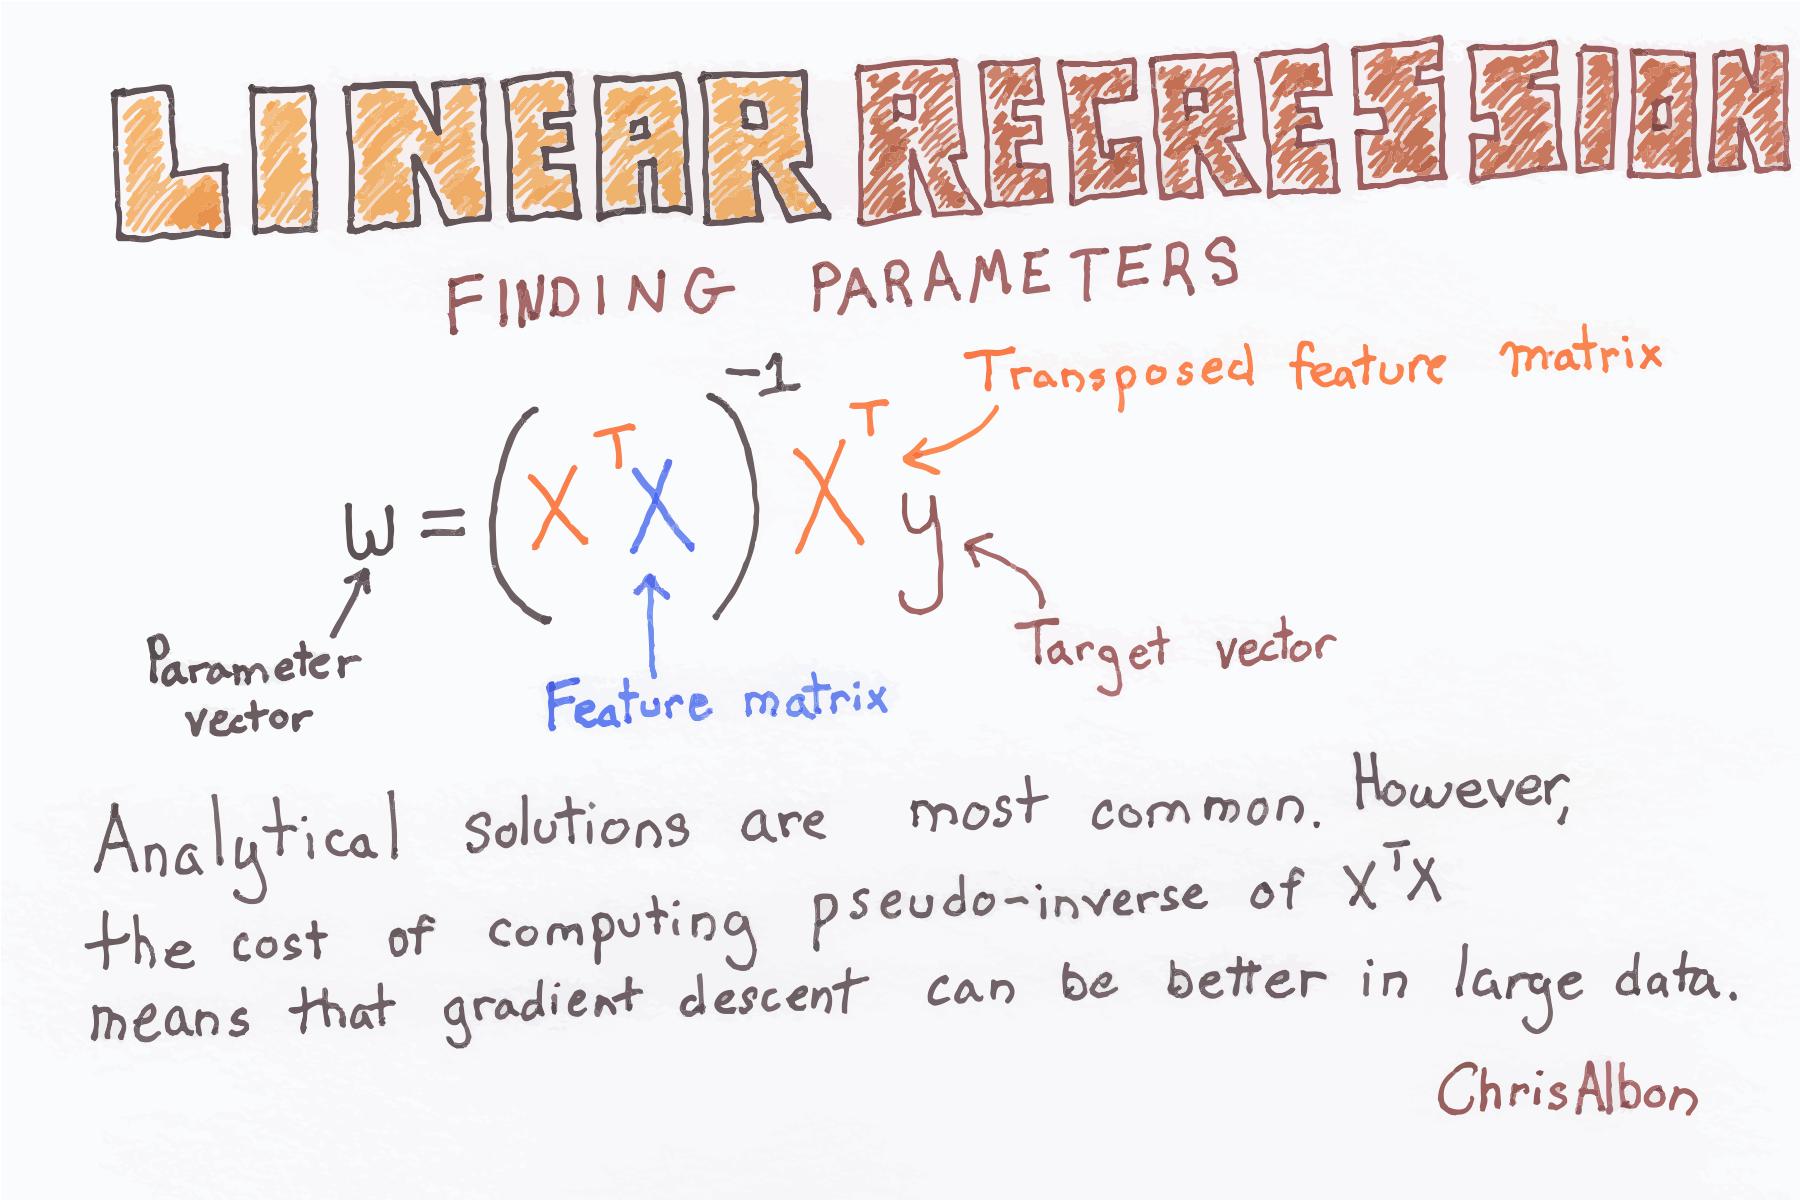 LINEAR REGRESSION
FINDING PARAMETERS
Transposed feature matrix
w = (XᵀX)⁻¹ Xᵀy
Parameter
vector
Feature matrix
Target vector
Analytical solutions are most common. However,
the cost of computing pseudo-inverse of XᵀX
means that gradient descent can be better in large data.
ChrisAlbon